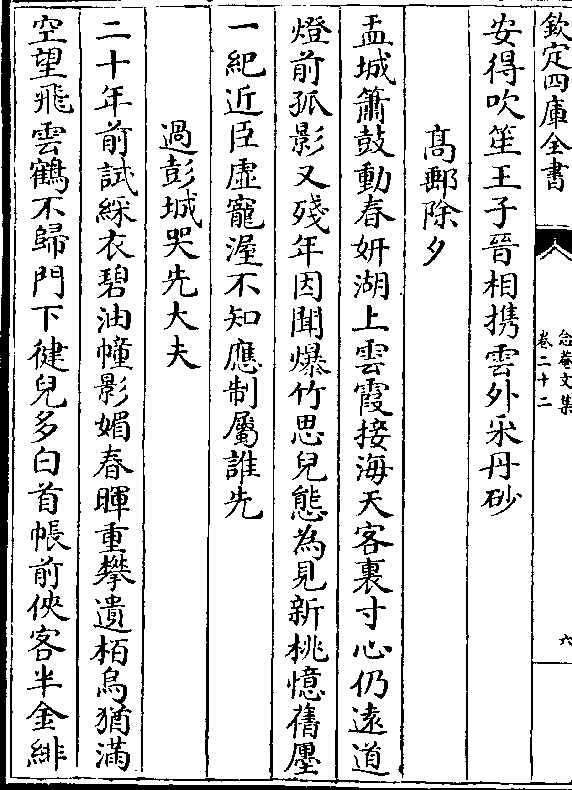 欽定四庫全書
念菴文集
卷二十二
六
安得吹笙王子晉相携雲外采丹砂
高郵除夕
盂城簫鼓動春妍湖上雲霞接海天客裏寸心仍遠道
燈前孤影又殘年因聞爆竹思兒態為見新桃憶舊廛
一紀近臣虛寵渥不知應制屬誰先
過彭城哭先大夫
二十年前試綵衣碧油幢影媚春暉重攀遺栢烏猶滿
空望飛雲鶴不歸門下健兒多白首帳前俠客半金緋